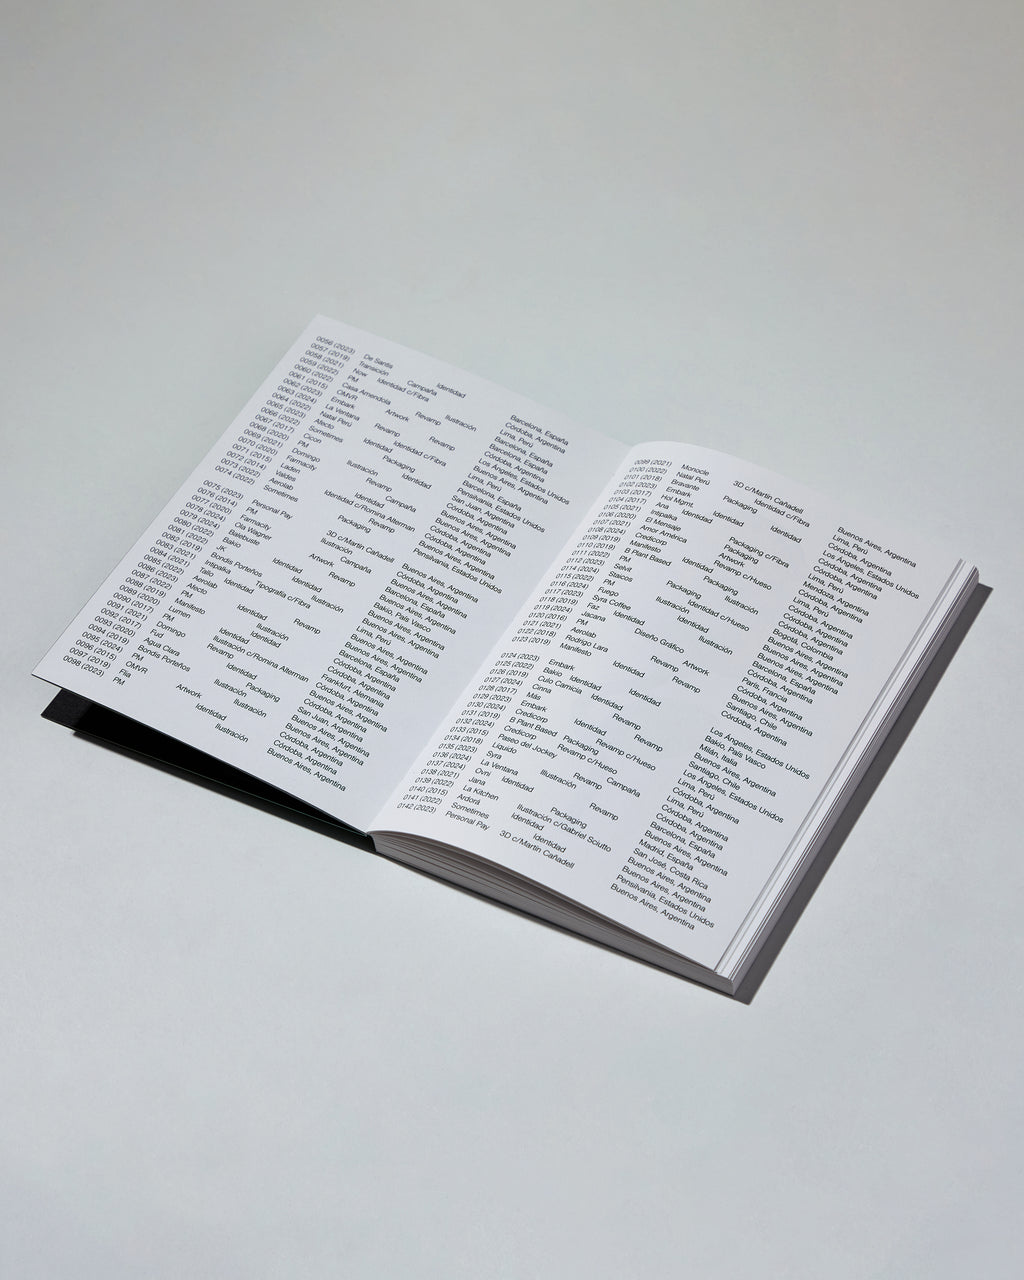 0056 (2023)
0057 (2019)
0058 (2021)
0059 (2022)
0060 (2022)
0061 (2015)
0062 (2023)
0063 (2024)
0064 (2022)
0065 (2023)
0066 (2022)
0067 (2017)
0068 (2020)
0069 (2021)
0070 (2020)
0071 (2015)
0072 (2014)
0073 (2022)
0074 (2022)
De Santis
Transición
Now
PM
Casa Amendola
OMVR
Embark
La Ventana
Natal Perú
Afecto
Sometimes
Cicon
PM
Domingo
Farmacity
Laden
Valdes
Aerolab
Sometimes
Identidad
Campaña
Identidad c/Fibra
Ilustración
Revamp
Artwork
Revamp
Revamp
Identidad c/Fibra
Identidad
Packaging
Identidad
Ilustración
Campaña
Revamp
Identidad
Identidad c/Romina Alterman
Revamp
Packaging
Barcelona, España
Córdoba, Argentina
Lima, Perú
Barcelona, España
Barcelona, España
Córdoba, Argentina
Los Ángeles, Estados Unidos
Buenos Aires, Argentina
Lima, Perú
Barcelona, España
Pensilvania, Estados Unidos
San Juan, Argentina
Córdoba, Argentina
Buenos Aires, Argentina
Buenos Aires, Argentina
Córdoba, Argentina
Córdoba, Argentina
Buenos Aires, Argentina
Pensilvania, Estados Unidos
0075 (2023)
0076 (2014)
0077 (2020)
0078 (2024)
0079 (2024)
0080 (2022)
0081 (2022)
0082 (2019)
0083 (2021)
0084 (2021)
0085 (2024)
0086 (2023)
0087 (2022)
0088 (2023)
0089 (2020)
0090 (2017)
0091 (2021)
0092 (2017)
0093 (2020)
0094 (2019)
0095 (2024)
0096 (2015)
0097 (2019)
0098 (2023)
Personal Pay
PM
Farmacity
Ola Wagner
Balebuste
Bakio
JK
Bondis Porteños
Intipalka
Jallo
Aerolab
Afecto
PM
Manifesto
Lumen
PM
Domingo
Fud
Agua Clara
Bondis Porteños
PM
OMVR
Flia
PM
3D c/Martín Cañadell
Ilustración
Campaña
Artwork
Revamp
Identidad
Identidad
Ilustración
Tipografía c/Fibra
Identidad
Revamp
Identidad
Ilustración
Identidad
Identidad
Ilustración c/Romina Alterman
Revamp
Identidad
Packaging
Ilustración
Ilustración
Artwork
Identidad
Ilustración
Buenos Aires, Argentina
Córdoba, Argentina
Buenos Aires, Argentina
Barcelona, España
Buenos Aires, Argentina
Bakio, País Vasco
Buenos Aires, Argentina
Buenos Aires, Argentina
Lima, Perú
Buenos Aires, Argentina
Buenos Aires, Argentina
Barcelona, España
Córdoba, Argentina
Frankfurt, Alemania
Córdoba, Argentina
Córdoba, Argentina
Buenos Aires, Argentina
Buenos Aires, Argentina
San Juan, Argentina
Buenos Aires, Argentina
Córdoba, Argentina
Córdoba, Argentina
Buenos Aires, Argentina
0099 (2021)
0100 (2022)
0101 (2018)
0102 (2023)
0103 (2017)
0104 (2017)
0105 (2021)
0106 (2020)
0107 (2021)
0108 (2024)
0109 (2019)
0110 (2019)
0111 (2022)
0112 (2023)
0114 (2024)
0115 (2022)
0116 (2024)
0117 (2023)
0118 (2019)
0119 (2024)
0120 (2016)
0121 (2021)
0122 (2018)
0123 (2019)
Monocle
Natal Perú
Bravante
Embark
Hol Mgmt.
Ana
Intipalka
El Menjale
Amor América
Credicorp
Manifesto
B Plant Based
PM
Selvit
Staicos
PM
Fuego
Syra Coffee
Faz
Jacana
PM
Aerolab
Rodrigo Lara
Manifesto
3D c/Martín Cañadell
Identidad c/Fibra
Packaging
Identidad
Identidad
Identidad
Packaging c/Fibra
Packaging
Artwork
Revamp c/Hueso
Packaging
Packaging
Ilustración
Identidad c/Hueso
Ilustración
Diseño Gráfico
Artwork
Revamp
Identidad
Revamp
Identidad
Buenos Aires, Argentina
Lima, Perú
Córdoba, Argentina
Los Ángeles, Estados Unidos
Córdoba, Argentina
Córdoba, Argentina
Lima, Perú
Mendoza, Argentina
Buenos Aires, Argentina
Lima, Perú
Córdoba, Argentina
Lima, Perú
Córdoba, Argentina
Bogotá, Colombia
Buenos Aires, Argentina
Buenos Aires, Argentina
Buenos Aires, Argentina
Barcelona, España
Córdoba, Argentina
París, Francia
Córdoba, Argentina
Buenos Aires, Argentina
Santiago, Chile
Córdoba, Argentina
0124 (2023)
0125 (2022)
0126 (2022)
0127 (2024)
0128 (2017)
0129 (2023)
0130 (2024)
0131 (2019)
0132 (2024)
0133 (2015)
0134 (2018)
0135 (2023)
0136 (2024)
0137 (2024)
0138 (2021)
0139 (2022)
0140 (2015)
0141 (2022)
0142 (2023)
Embark
Bakio
Culo Camicia
Cinna
Más
Embark
Credicorp
B Plant Based
Credicorp
Paseo del Jockey
Líquido
Syra
La Ventana
Ovni
Jana
La Kitchen
Ardorä
Sometimes
Personal Pay
Revamp
Identidad
Identidad
Identidad
Revamp
Revamp c/Hueso
Packaging
Revamp c/Hueso
Campaña
Revamp
Ilustración
Revamp
Packaging
Ilustración c/Gabriel Sciutto
Identidad
Identidad
3D c/Martín Cañadell
Los Ángeles, Estados Unidos
Bakio, País Vasco
Milán, Italia
Buenos Aires, Argentina
Santiago, Chile
Los Ángeles, Estados Unidos
Lima, Perú
Córdoba, Argentina
Lima, Perú
Córdoba, Argentina
Córdoba, Argentina
Barcelona, España
Buenos Aires, Argentina
Madrid, España
San José, Costa Rica
Buenos Aires, Argentina
Buenos Aires, Argentina
Pensilvania, Estados Unidos
Buenos Aires, Argentina